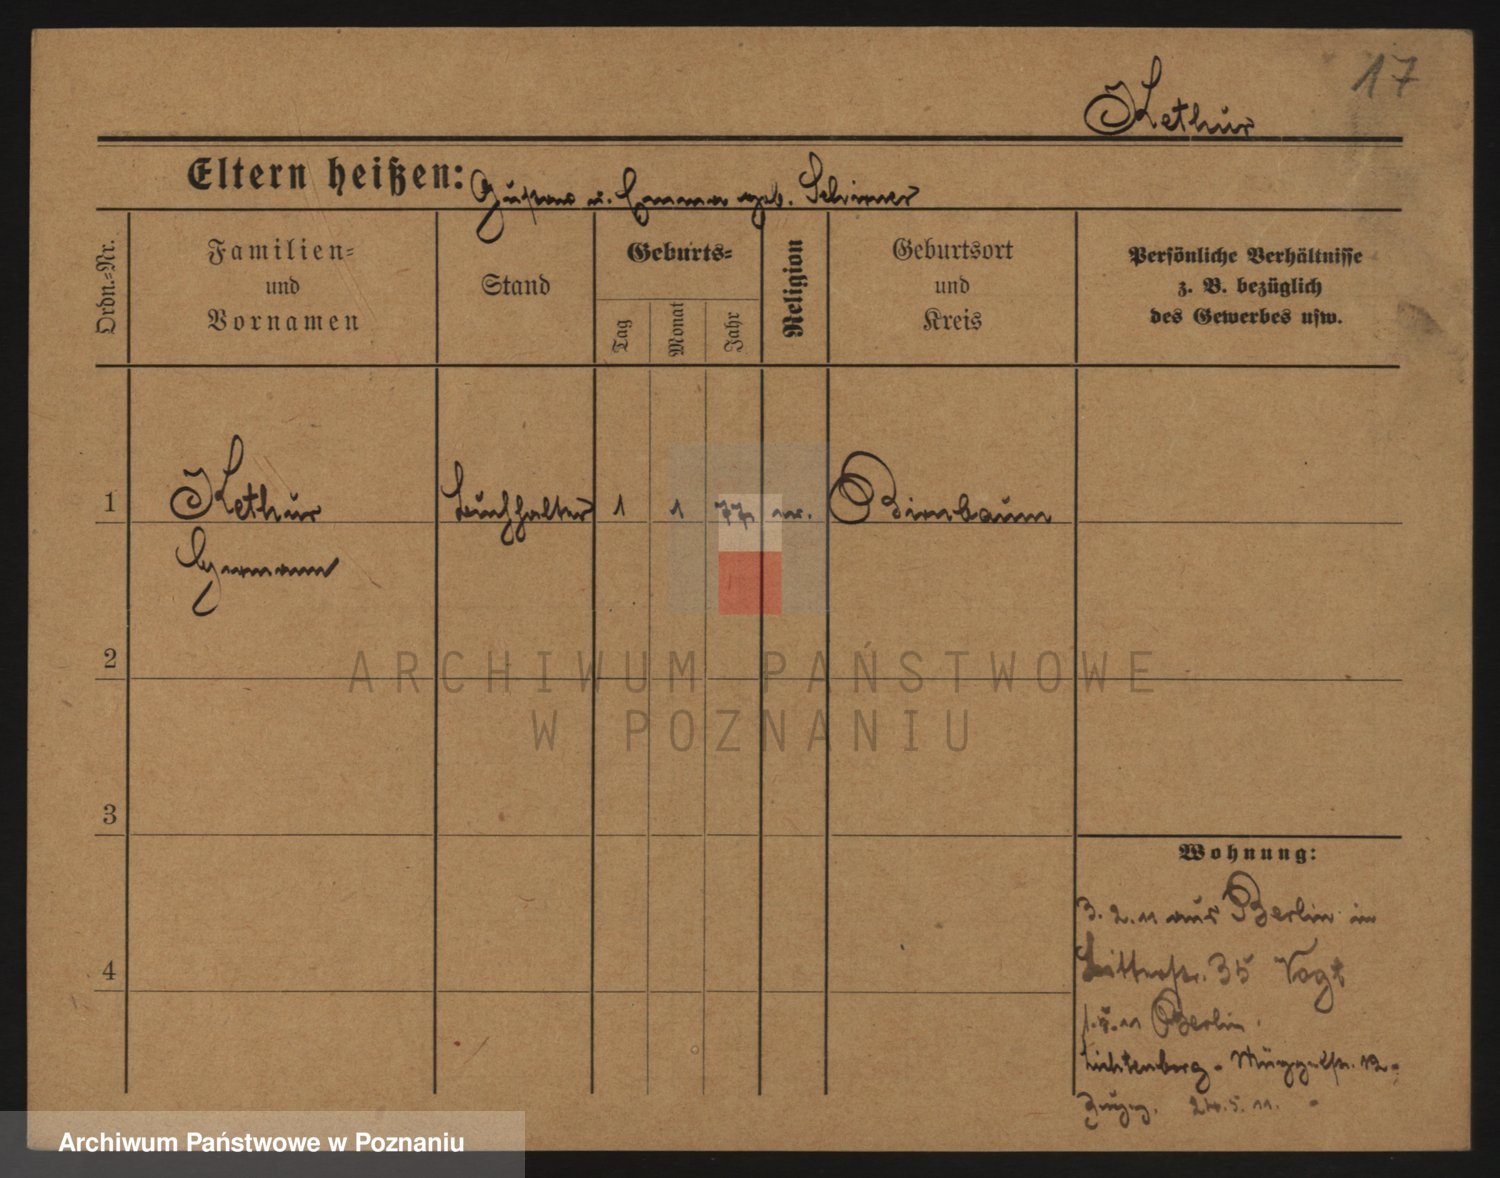 17
Kethur
Eltern heißen: Gustav u. Emma geb. Schirmer
Ordn.-Nr.
Familien-
und
Vornamen
Stand
Geburts-
Tag
Monat
Jahr
Religion
Geburtsort
und
Kreis
Persönliche Verhältnisse
z. B. bezüglich
des Gewerbes usw.
1 Kethur Buchhalter 1 1 77 Birnbaum
Hermann
2
3
4
Wohnung:
3. 2. 11 aus Berlin in
35 Vogt
11 Berlin.
Lichtenberg - Müggelstr.
24. 5. 11.
ARCHIWUM PAŃSTWOWE
W POZNANIU
Archiwum Państwowe w Poznaniu